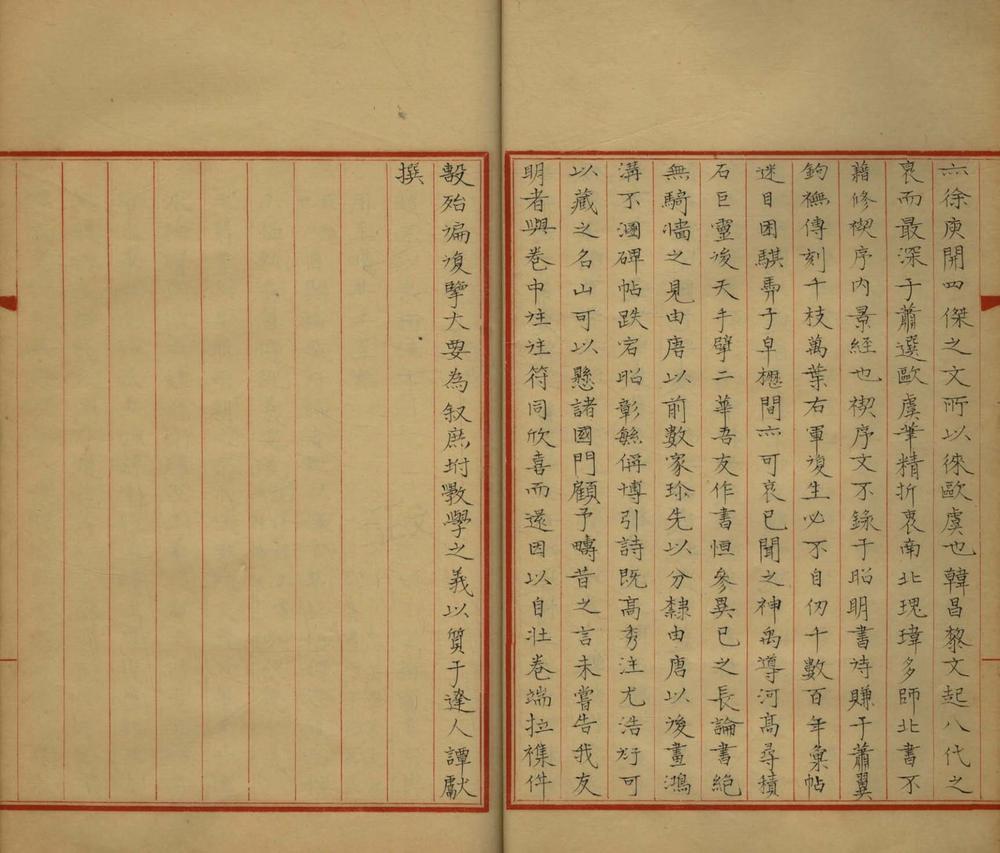 亦徐庾開四傑之文所以徠歐虞也韓昌黎文起八代之
衰而最深于蕭選歐虞筆精折衷南北瑰瑋多師北書不
藉修禊序內景經也禊序文不錄于昭明書詩賺于蕭翼
鉤橅傳刻千枝萬葉右軍復生必不自仞千數百年彙帖
迷目困騏驥于皁櫪間亦可哀已聞之神禹導河高尋積
石巨靈後天手擘二華吾友作書恒參異己之長論書絕
無騎牆之見由唐以前數家珍先以分隸由唐以後畫鴻
溝不溷碑帖跌宕昭彰緐偁博引詩既高秀注尤浩汗可
以藏之名山可以懸諸國門顧予疇昔之言未嘗告我友
明者與卷中往往符同欣喜而還因以自壯卷端拉襍件
𣪠殆徧復擥大要為敘庶坿斆學之義以質于達人譚獻
撰